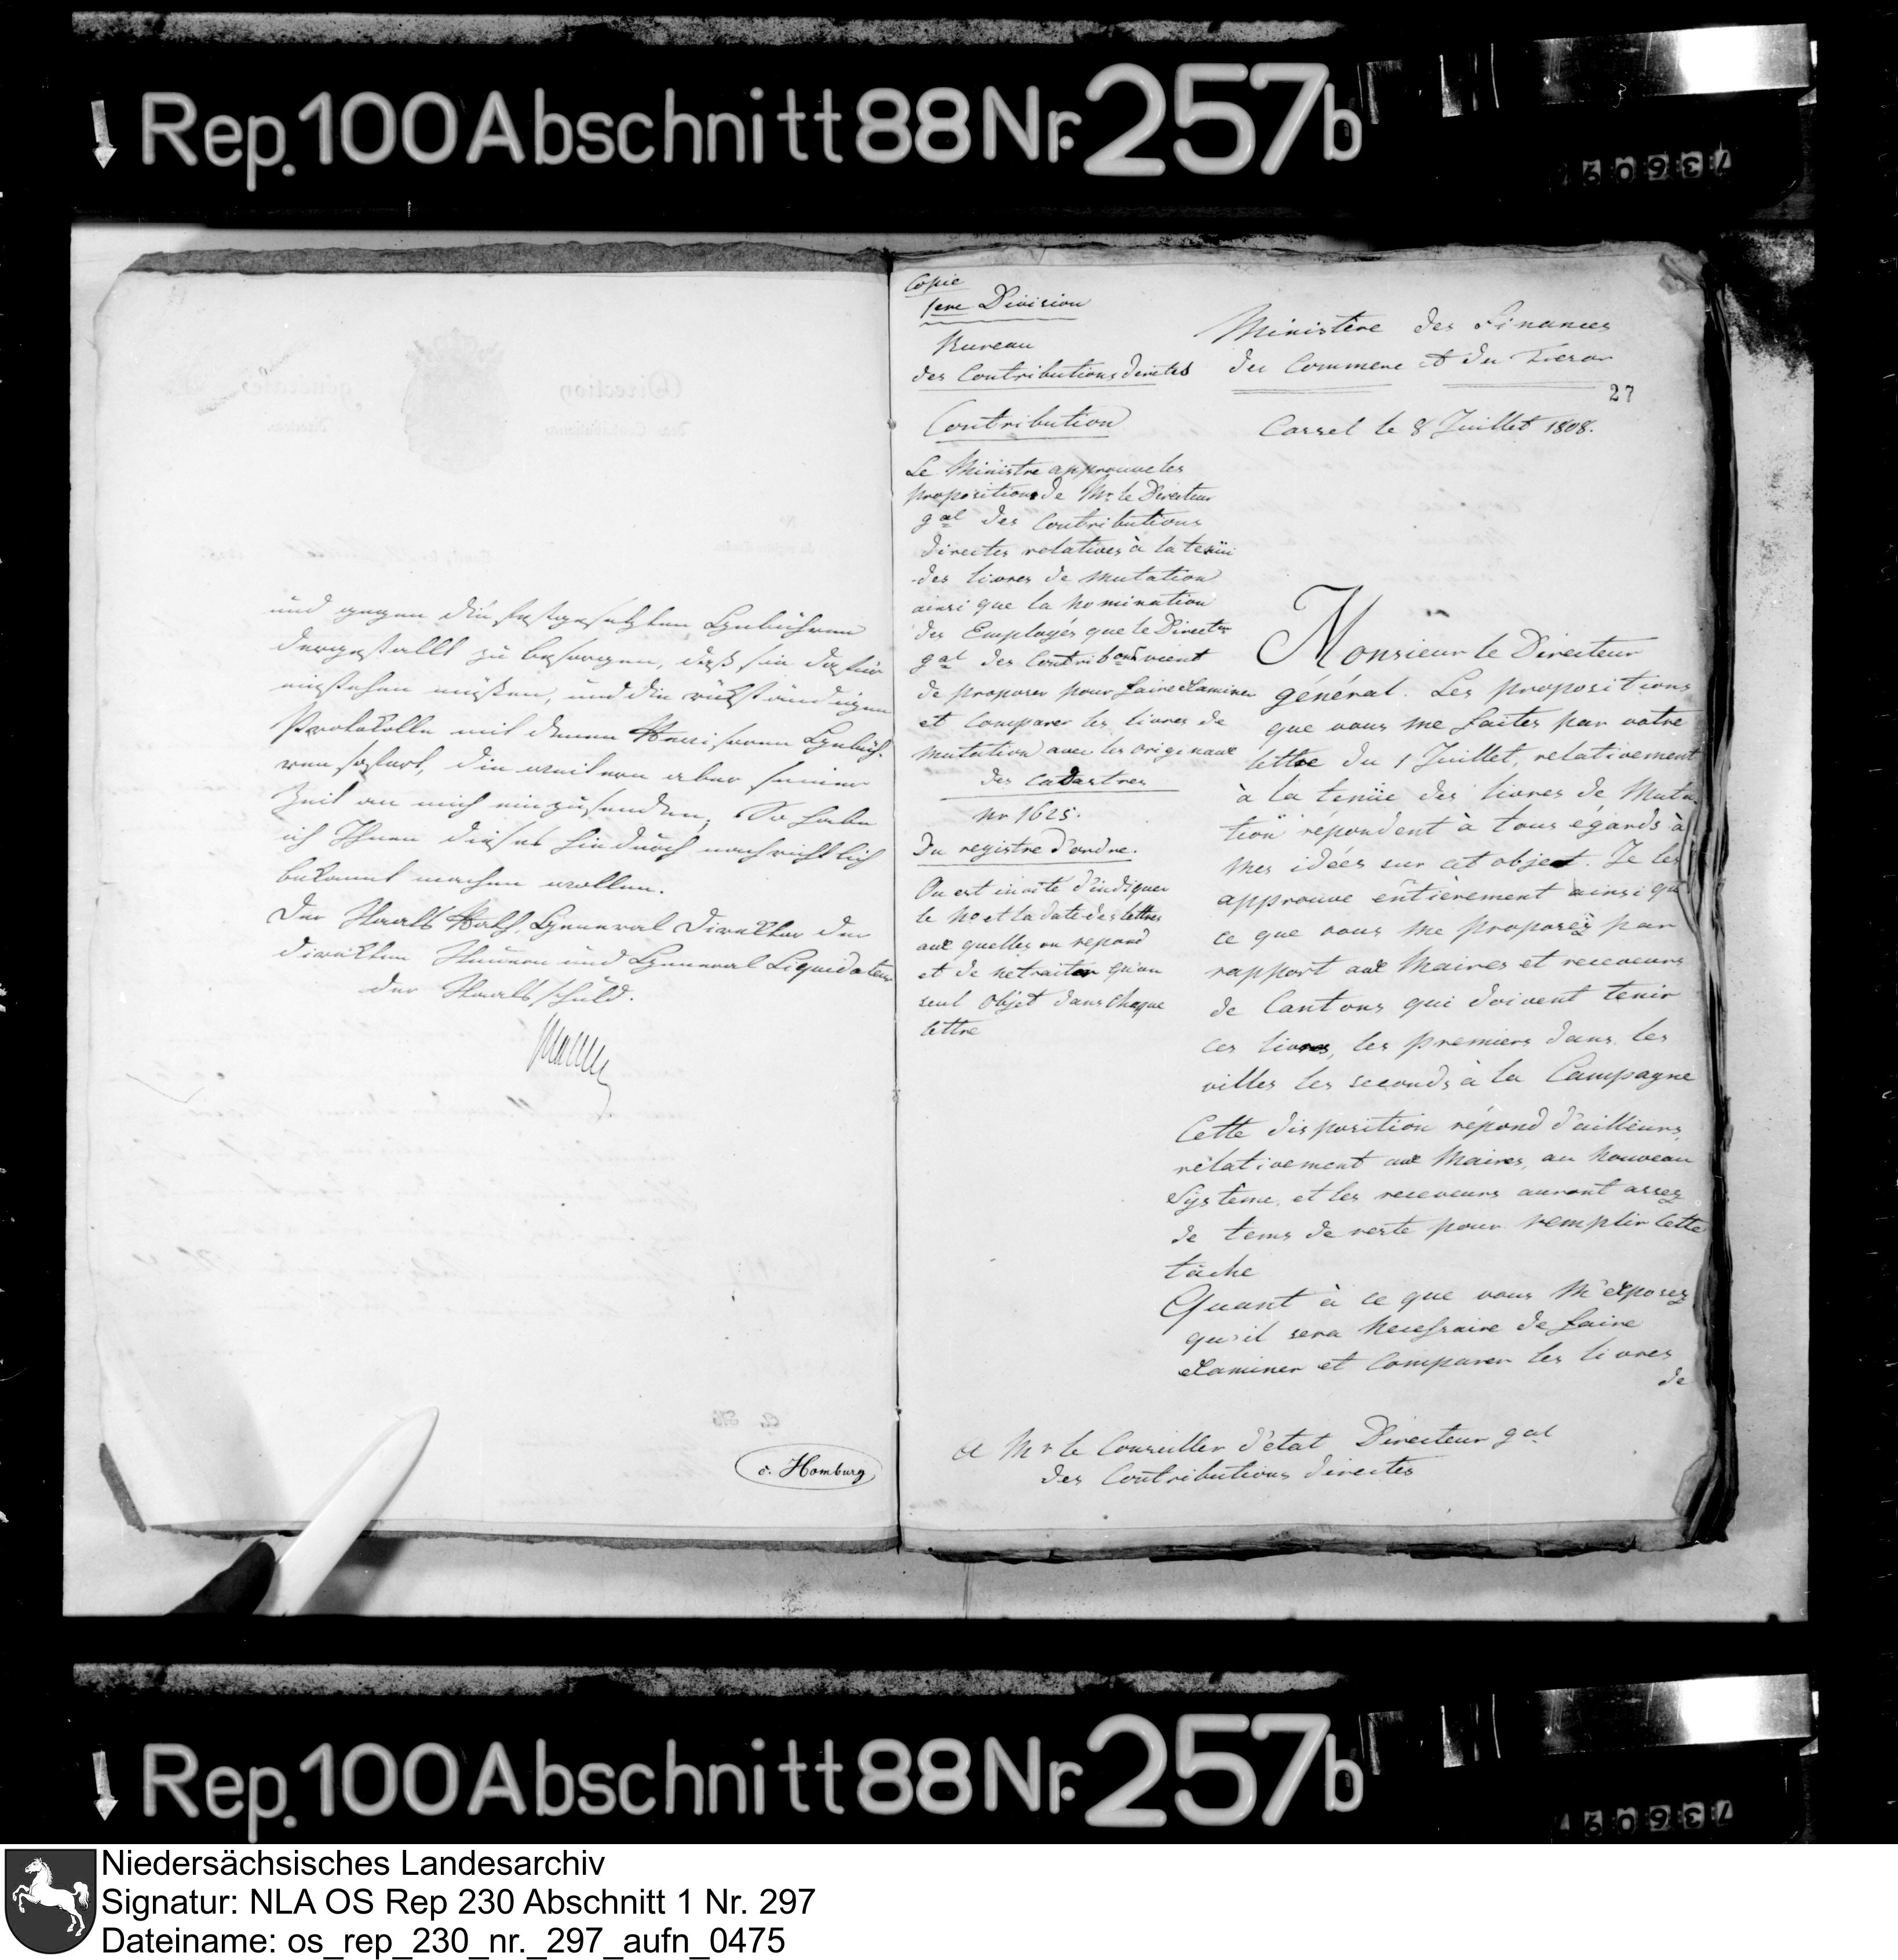 Rep. 100 Abschnitt 88 Nr. 257b
73609
und gegen die festgesetzten Gebühren
dergestallt zu besorgen, daß sie dafür
einstehen müßen, und die rükständigen
Protokolle mit denen Gebüh-
ren sofort, die weitern aber seiner
Zeit an mich einzusenden; So habe
ich Ihnen dieses hiedurch nachrichtlich
bekannt machen wollen.
Der Staats Rath, General Direktor der
direkten Steuern und General Liquidateur
der Staatsschuld.
v. Homburg
Copie
1ere Division
Bureau
des Contributions directes
Contribution
Le Ministre approuve les
propositions de Mr. le Directeur
gal des Contributions
directes relatives à la tenüe
des livres de mutation
ainsi que la nomination
des Employés que le Directr
gal des Contribons vient
de proposer pour faire examiner
et comparer les livres de
mutation avec les originaux
des cadastres
nr 1625.
Du registre d'ordre.
On est invité d'indiquer
le no et la date des lettres
aux quelles on repond
et de ne traiter qu'un
seul objet dans chaque
lettre
Ministère des Finances
du Commerce et du Tresor
27
Cassel le 8 Juillet 1808.
Monsieur le Directeur
général. Les propositions
que vous me faites par votre
lettre du 1 Juillet, relativement
à la tenüe des livres de Muta-
tion répondent à tous égards à
mes idées sur cet objet. Je les
approuve entièrement ainsi que
ce que vous me proposez par
rapport aux Maires et receveurs
de Cantons qui doivent tenir
ces livres, les premiers dans les
villes les seconds à la Campagne
Cette disposition répond d'ailleurs,
relativement aux Maires, au nouveau
Systeme, et les receveurs auront assez
de tems de reste pour remplir cette
tâche
Quant à ce que vous m'exposez
qu'il sera necessaire de faire
examiner et comparer les livres
de
A Mr le Conseiller d'état Directeur gal
des Contributions directes
Rep. 100 Abschnitt 88 Nr. 257b
73609
Niedersächsisches Landesarchiv
Signatur: NLA OS Rep 230 Abschnitt 1 Nr. 297
Dateiname: os_rep_230_nr._297_aufn_0475